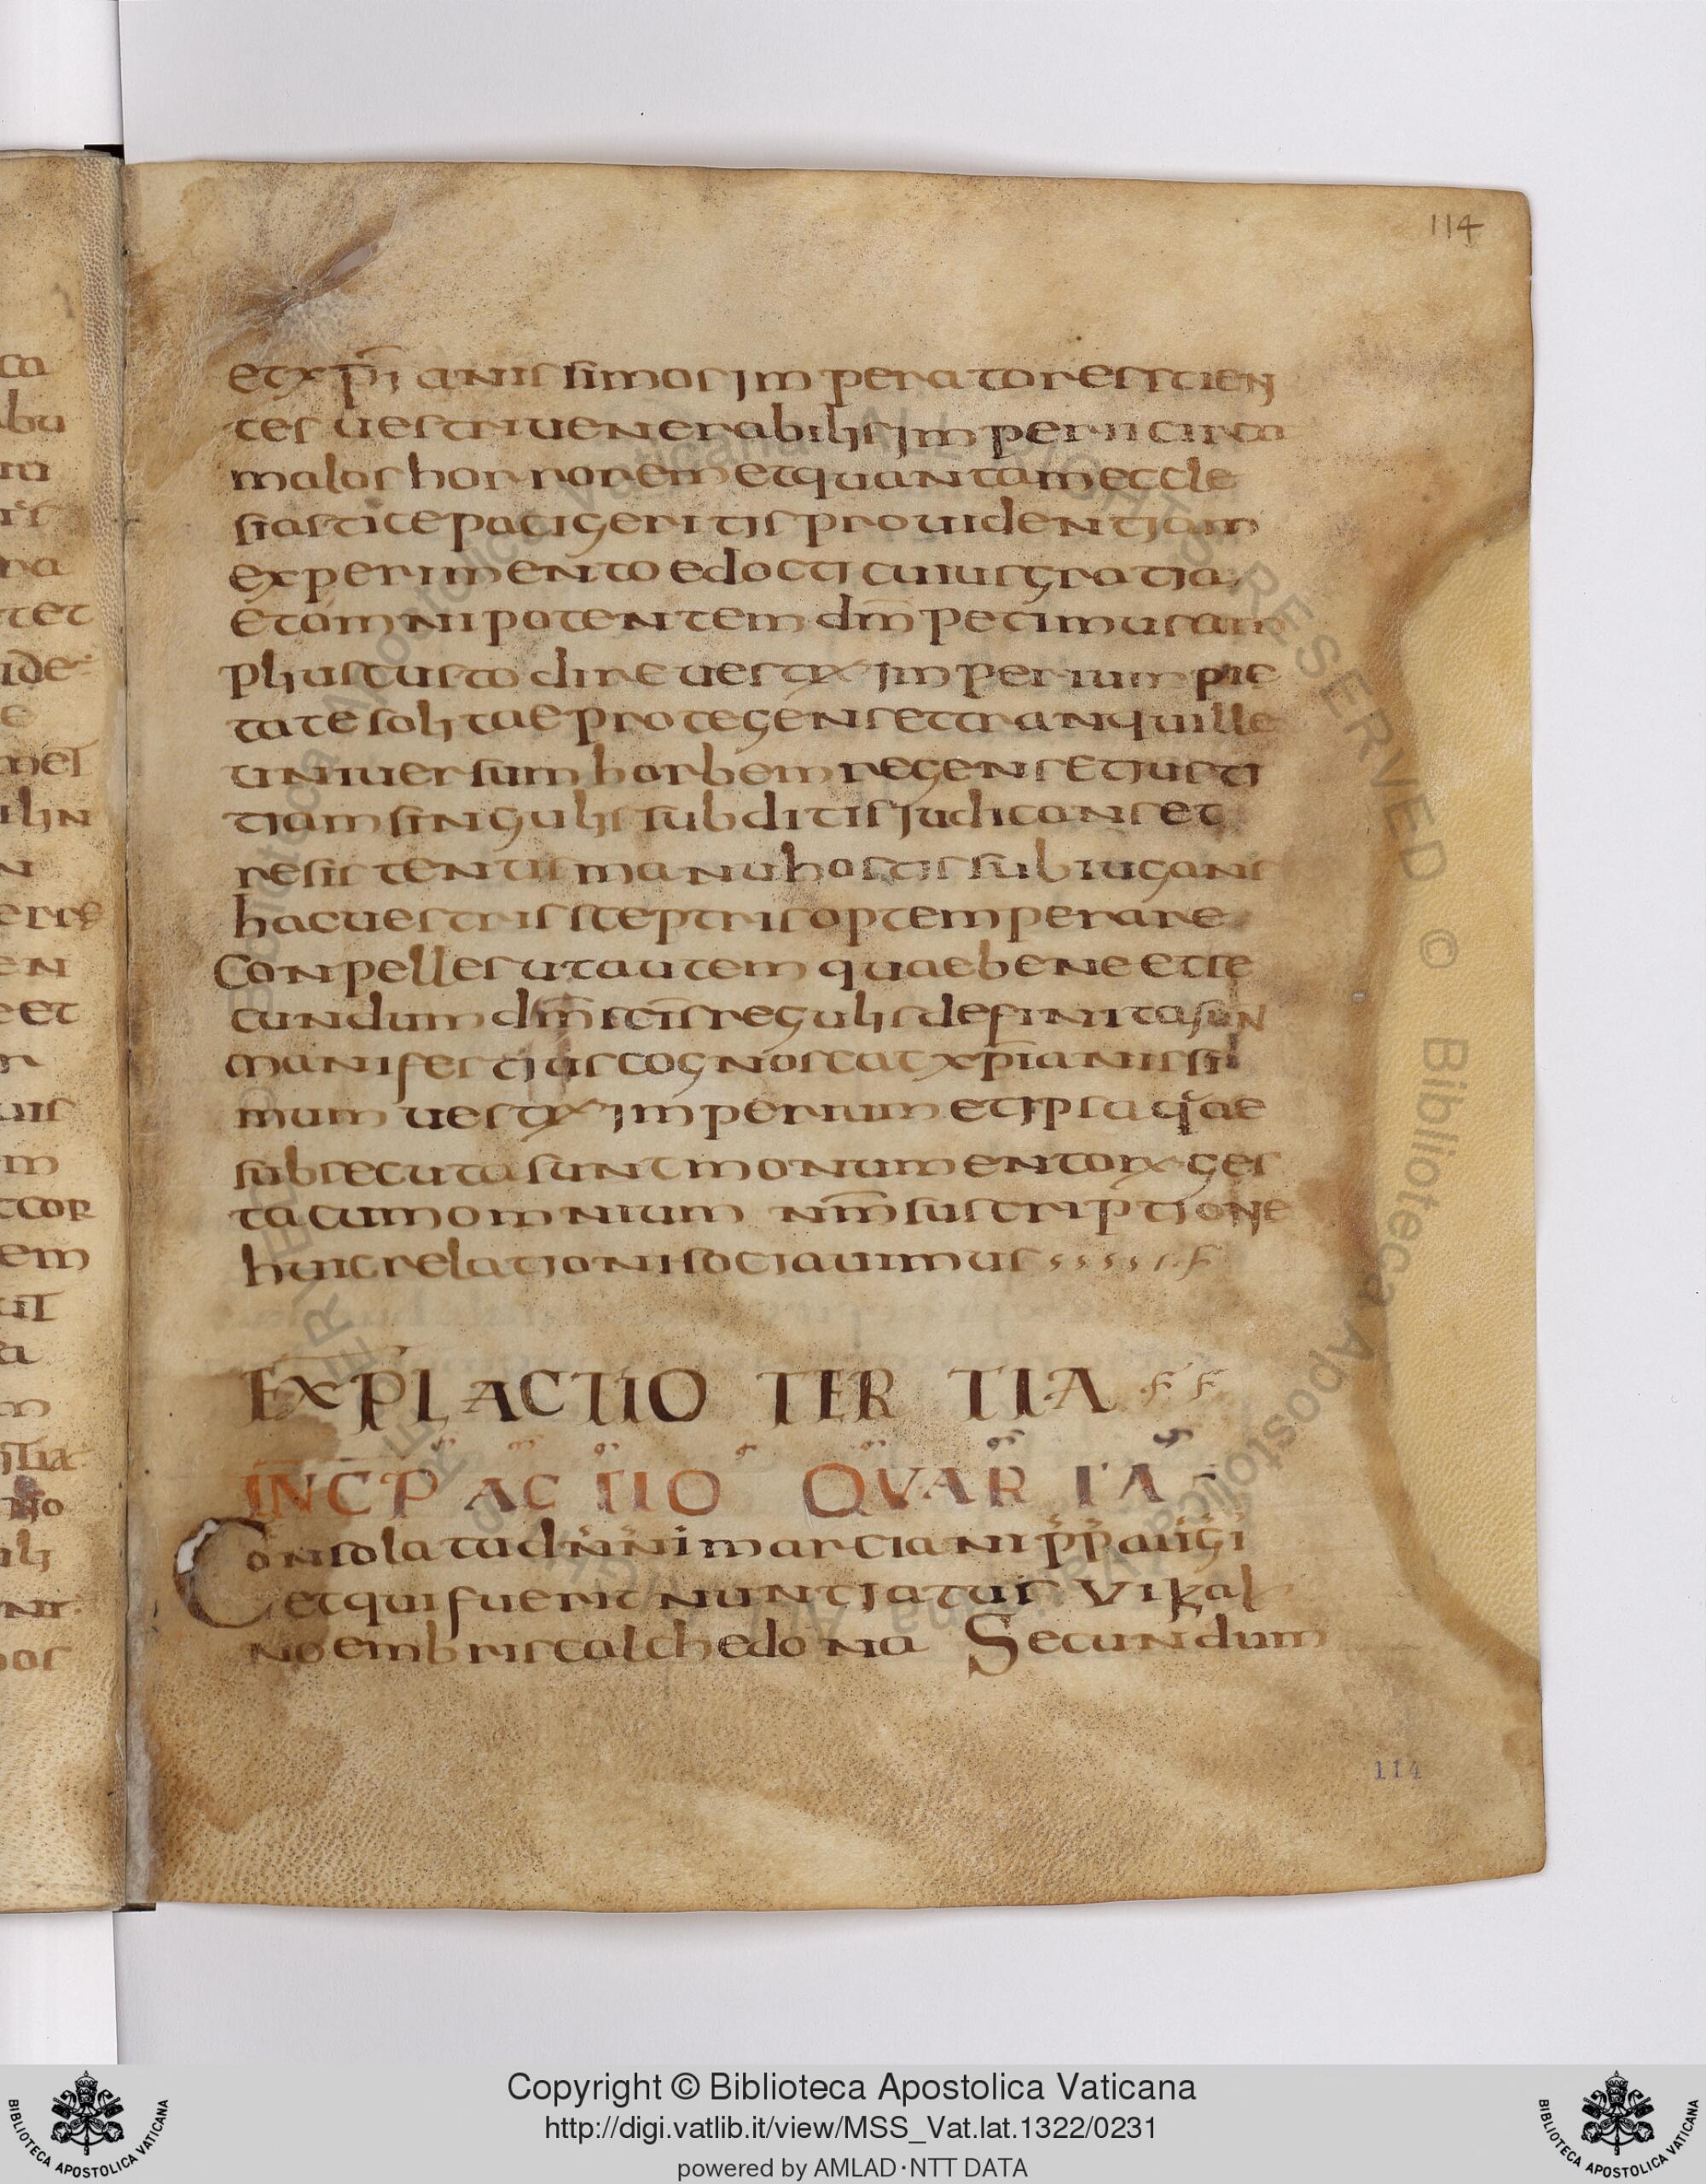 114
etxp̄ianissimosimperatoresscien
tesuestriuenerabilisimperiicirca
maloshorroremetquantameccle
siasticepacigeritisprouidentiam
experimentoedocticuiusgratia
etomnipotentemdm̄petimusam
pliuscustodireuestrximperiumpie
tatesolitaeprotegensettranquille
uniuersumhorbemregensetiusti
tiamsingulissubditisiudicanset
resistentismanuhostissubiugans
hacuestrissceptrisoptemperare
Conpellesutautemquaebeneetse
cundumdm̄icisregulisdefinitasun
manifestiuscognoscatxp̄ianissi
mumuestrximperiumetipsaquae
subsecutasuntmonumentorxges
tacumomnium nm̄suscriptione
huicrelationisociauimus
EXPL ACTIO TERTIA
INCP ACTIO QVARTA
Consolatudn̄n̄imarcianip̄p̄aug̅i
etquifueritnuntiatus VI kal
noembriscalchedona Secundum
114
Copyright © Biblioteca Apostolica Vaticana
http://digi.vatlib.it/view/MSS_Vat.lat.1322/0231
powered by AMLAD·NTT DATA
BIBLIOTECA APOSTOLICA VATICANA
BIBLIOTECA APOSTOLICA VATICANA